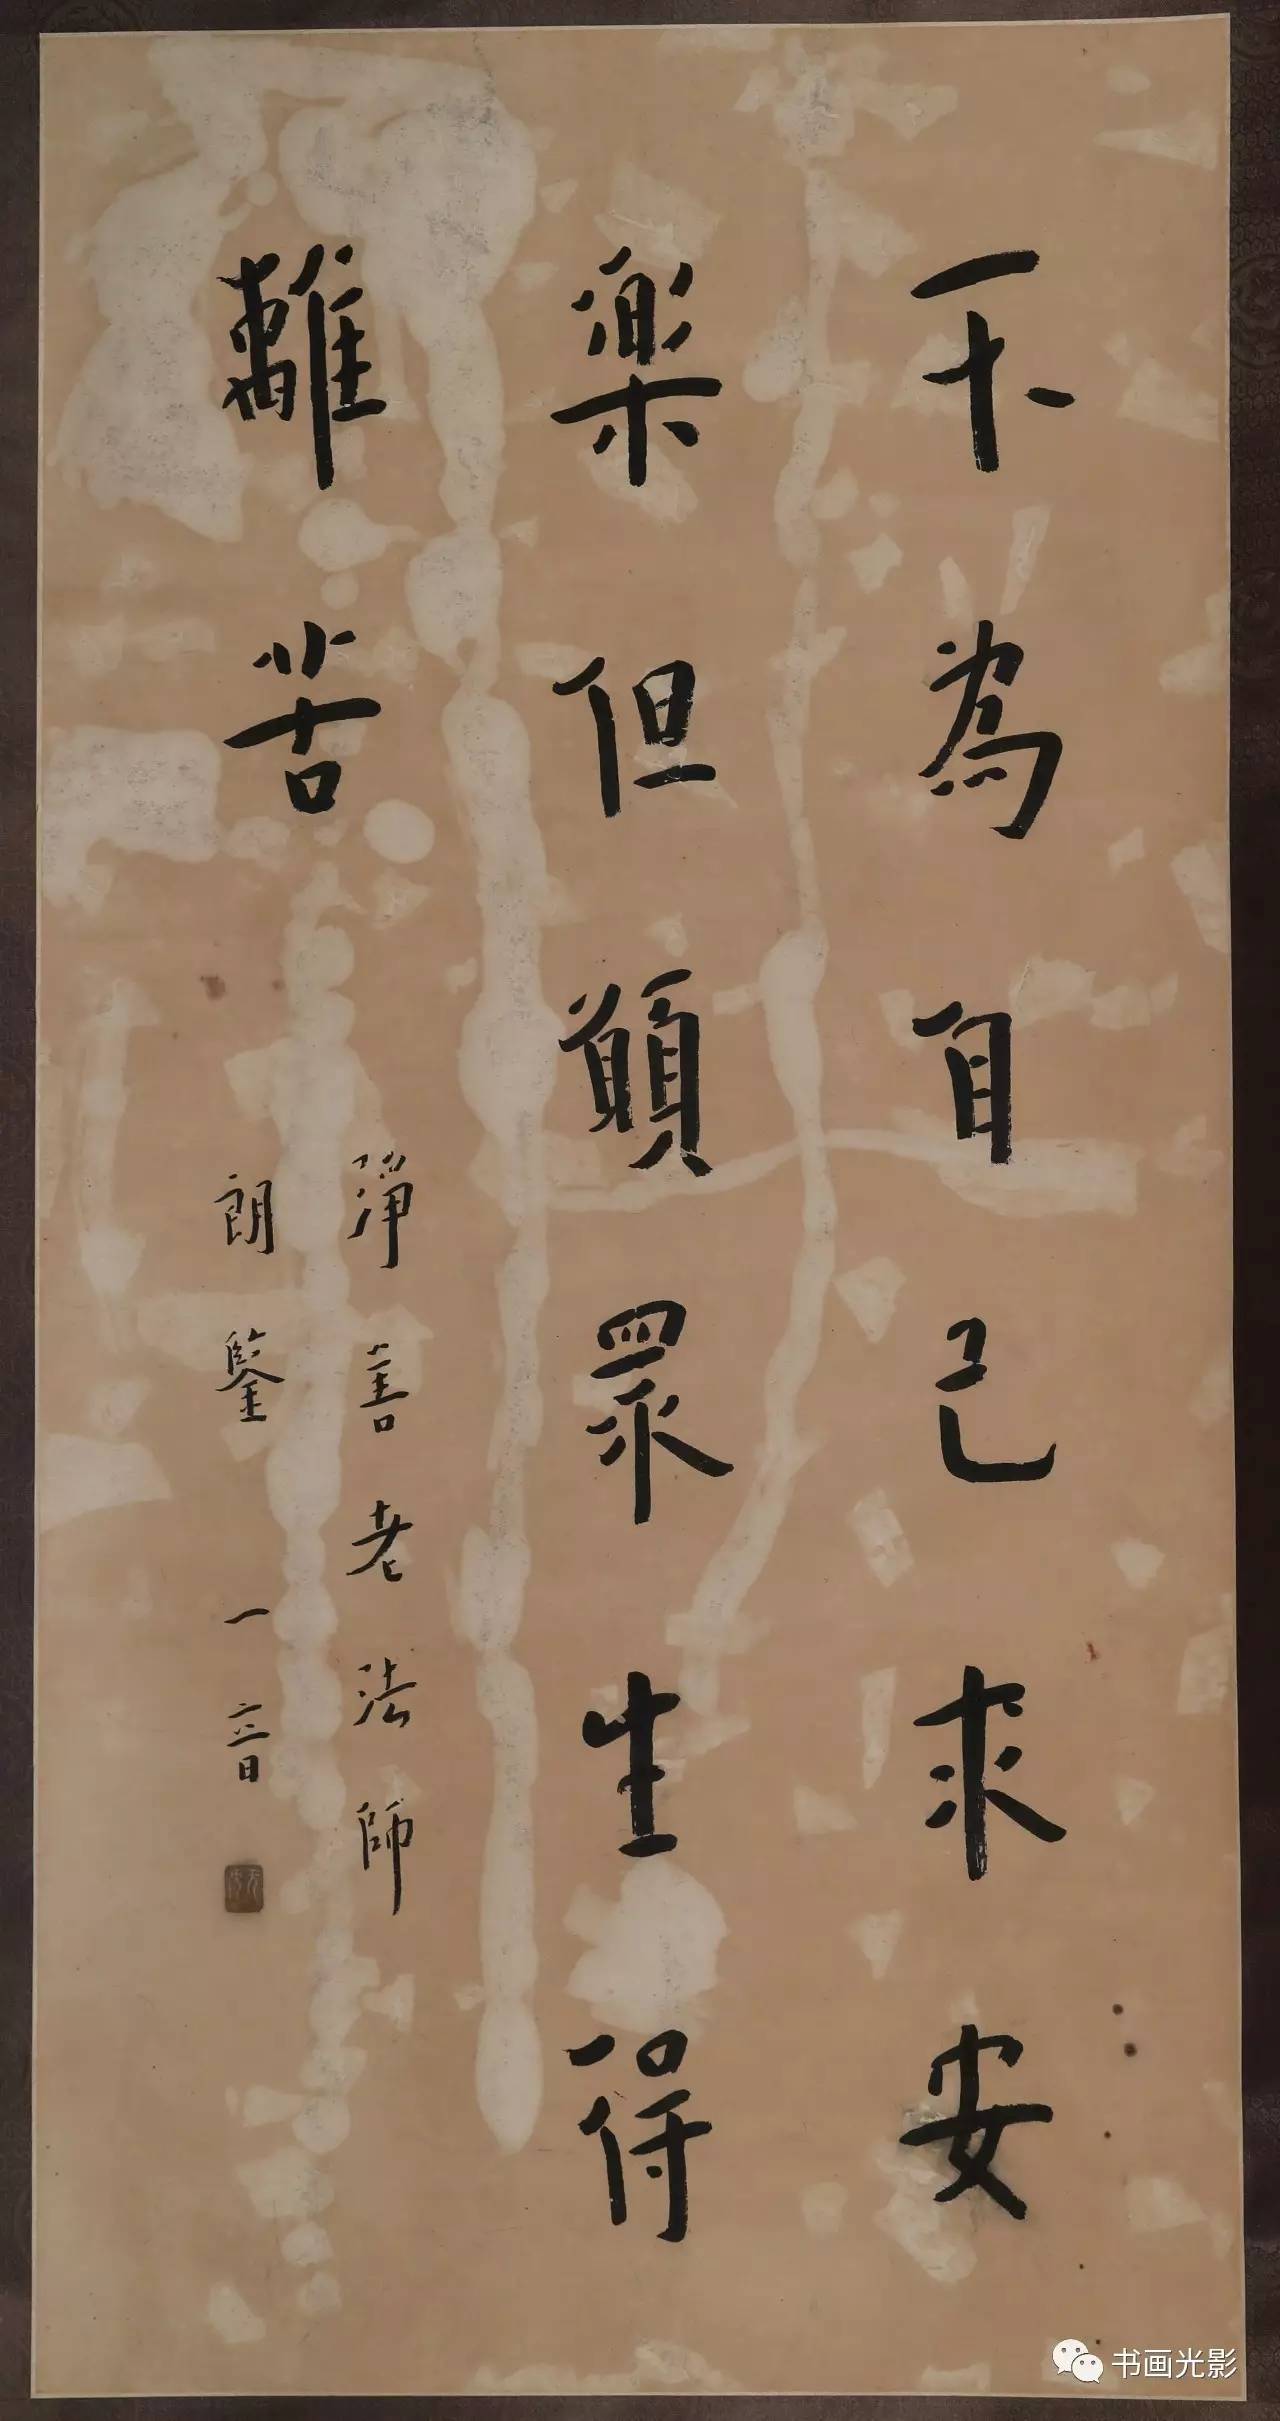 不為自己求安
樂但願眾生得
離苦
淨善老法師
朗鑒 一音
书画光影